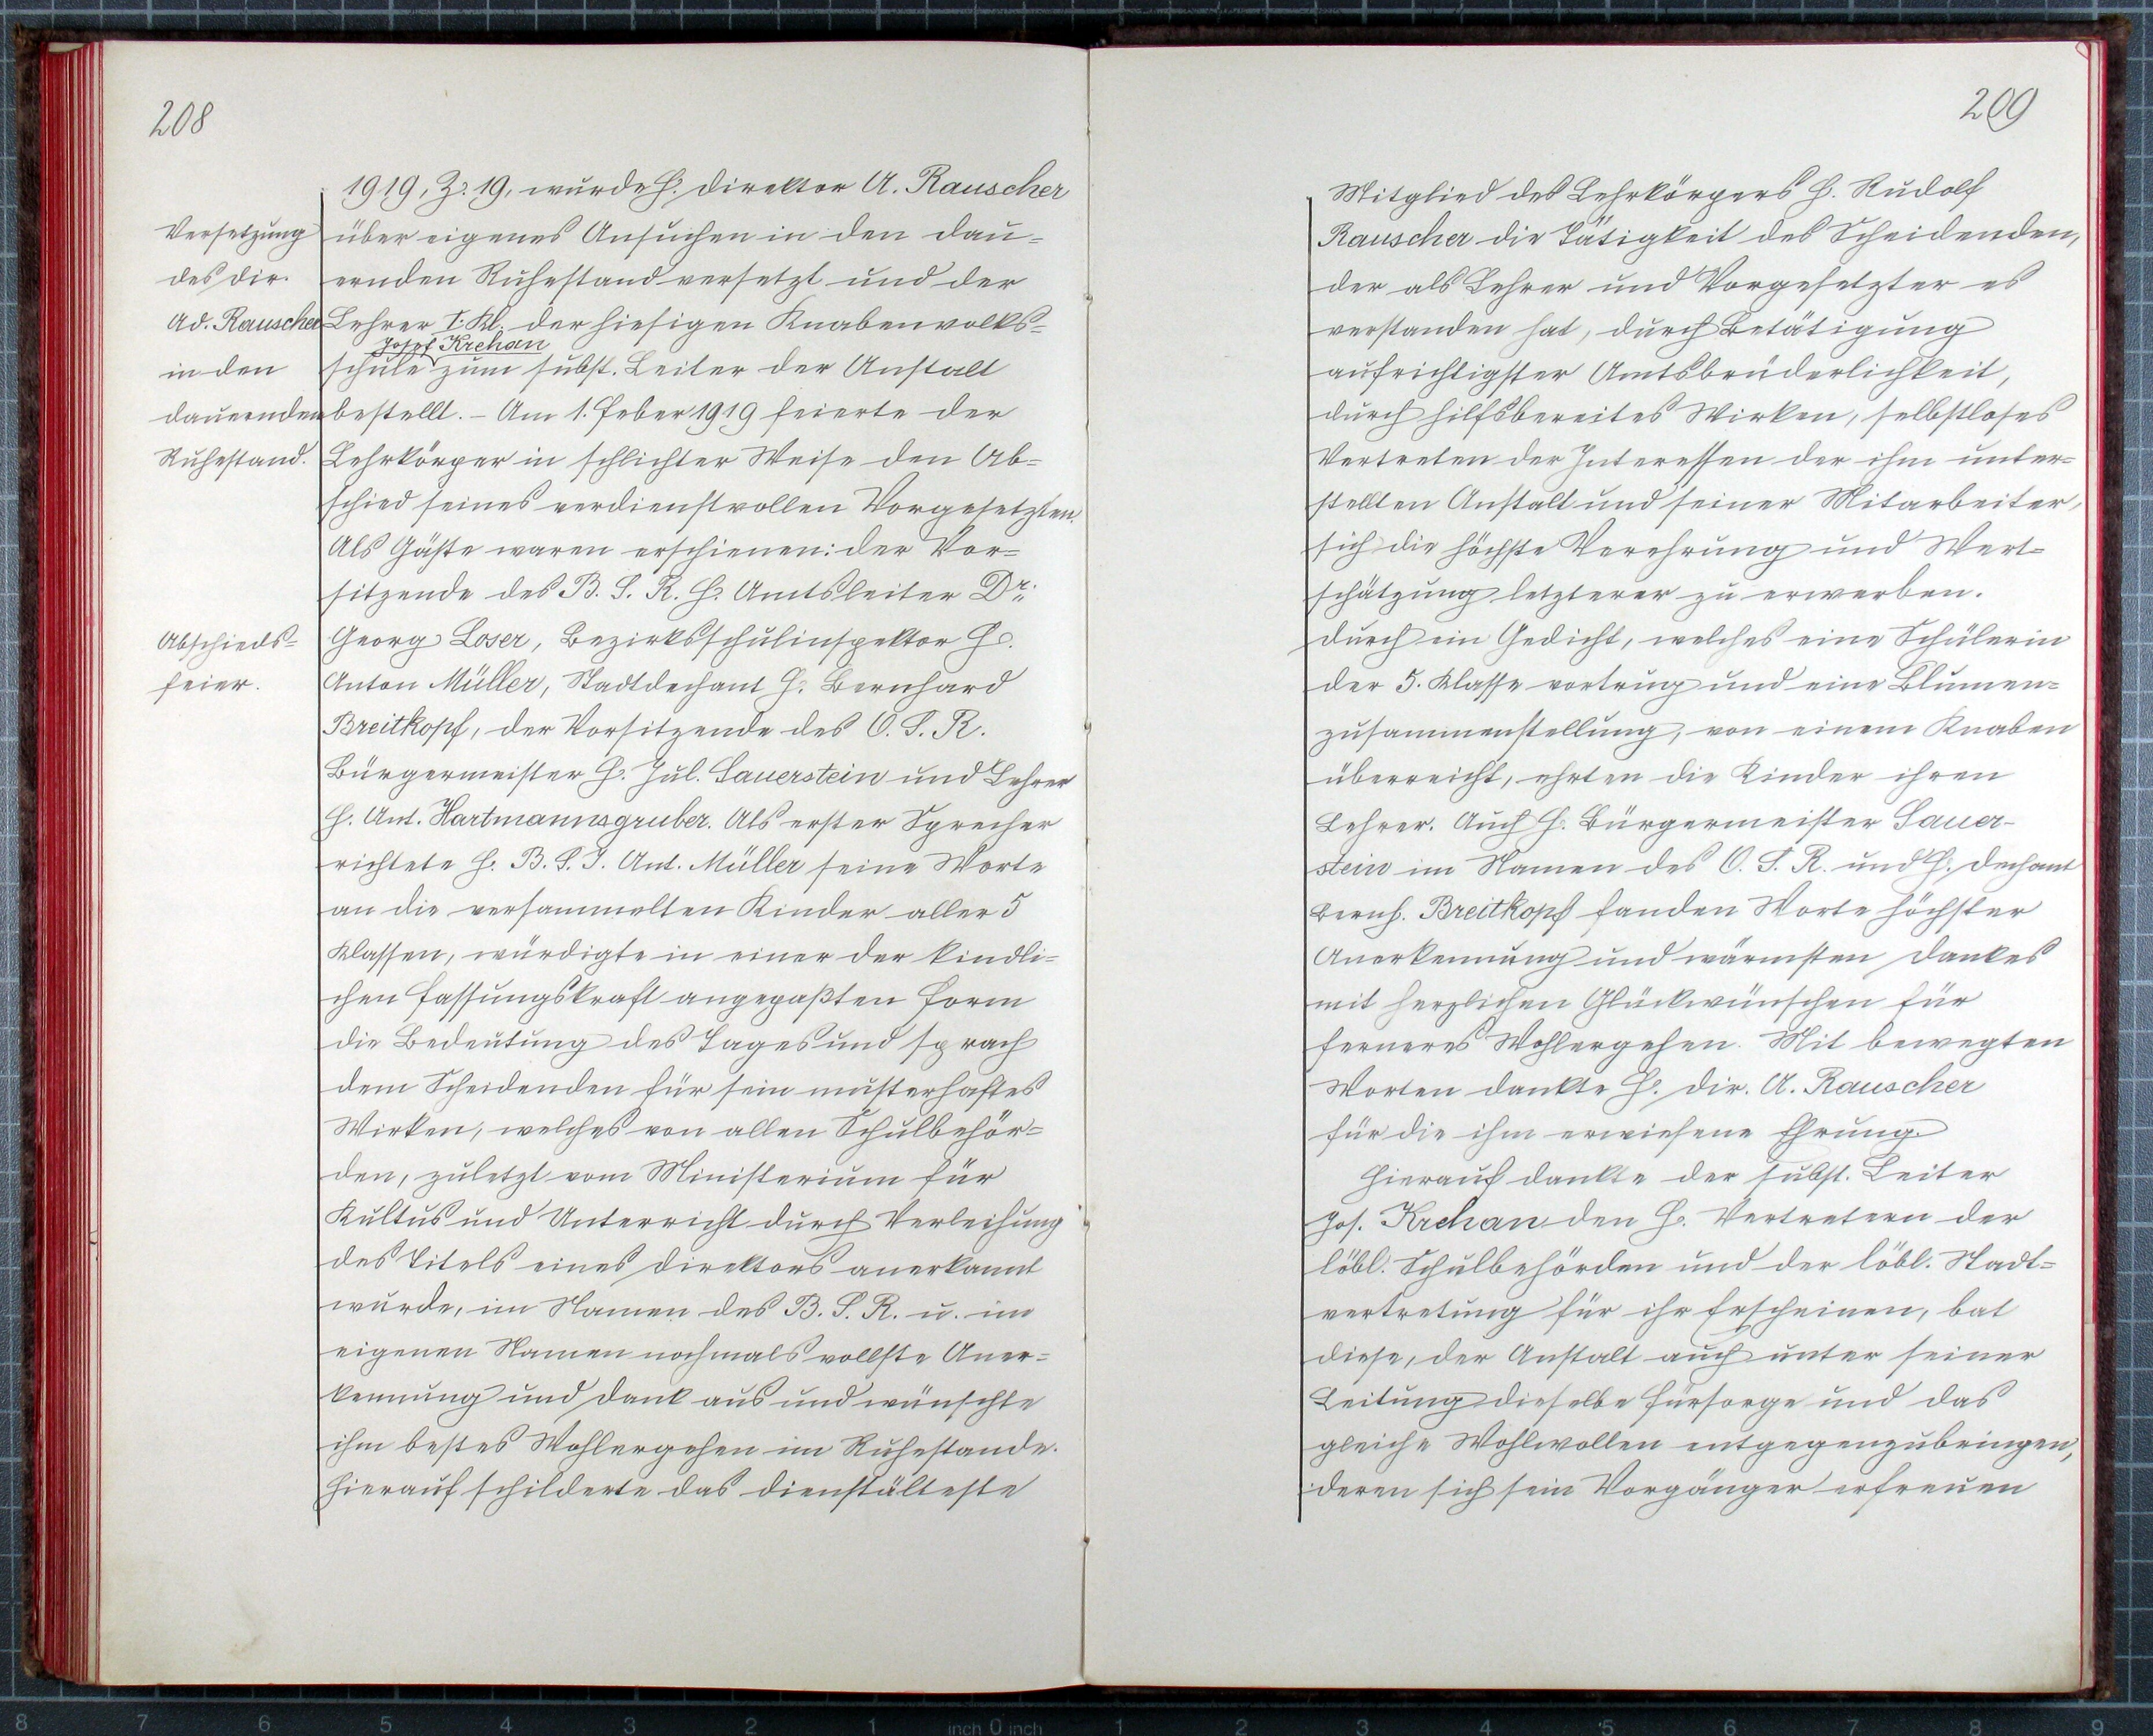 208
1919, Z. 19, wurde H. Direktor A. Rauscher
Versetzung
über eigenes Ansuchen in den dau-
des Dir.
ernden Ruhestand versetzt und der
Ad. Rauscher
Lehrer I. Kl. der hiesigen Knabenvolks-
Josef Krehan
in den
schule zum subst. Leiter der Anstalt
dauernden
bestellt. – Am 1. Feber 1919 feierte der
Ruhestand.
Lehrkörper in schlichter Weise den Ab-
schied seines verdienstvollen Vorgesetzten.
Als Gäste waren erschienen: der Vor-
sitzende des B. S. R. H. Amtsleiter Dr.
Abschieds-
Georg Loser, Bezirksschulinspektor H.
feier.
Anton Müller, Stadtdechant H. Bernhard
Breitkopf, der Vorsitzende des O. S. R.
Bürgermeister H. Jul. Sauerstein und Lehrer
H. Ant. Hartmannsgruber. Als erster Sprecher
richtete H. B. S. I. Ant. Müller seine Worte
an die versammelten Kinder aller 5
Klassen, würdigte in einer der kindli-
chen Fassungskraft angepaßten Form
die Bedeutung des Tages und sprach
dem Scheidenden für sein musterhaftes
Wirken, welches von allen Schulbehör-
den, zuletzt vom Ministerium für
Kultus und Unterricht durch Verleihung
des Titels eines Direktors anerkannt
wurde, im Namen des B. S. R. u. im
eigenen Namen nochmals vollste Aner-
kennung und Dank aus und wünschte
ihm bestes Wohlergehen im Ruhestande.
Hierauf schilderte das dienstälteste
209
Mitglied des Lehrkörpers H. Rudolf
Rauscher die Tätigkeit des Scheidenden,
der als Lehrer und Vorgesetzter es
verstanden hat, durch Betätigung
aufrichtigster Amtsbrüderlichkeit,
durch hilfsbereites Wirken, selbstloses
Vertreten der Interessen der ihm unter-
stellten Anstalt und seiner Mitarbeiter,
sich die höchste Verehrung und Wert-
schätzung letzterer zu erwerben.
Durch ein Gedicht, welches eine Schülerin
der 5. Klasse vortrug und eine Blumen-
zusammenstellung, von einem Knaben
überreicht, ehrten die Kinder ihren
Lehrer. Auch H. Bürgermeister Sauer-
stein im Namen des O. S. R. und H. Dechant
Bernh. Breitkopf fanden Worte höchster
Anerkennung und wärmsten Dankes
mit herzlichen Glückwünschen für
ferneres Wohlergehen. Mit bewegten
Worten dankte H. Dir. A. Rauscher
für die ihm erwiesene Ehrung.
Hierauf dankte der subst. Leiter
Jos. Krehan den H. Vertretern der
löbl. Schulbehörden und der löbl. Stadt-
vertretung für ihr Erscheinen, bat
diese, der Anstalt auch unter seiner
Leitung dieselbe Fürsorge und das
gleiche Wohlwollen entgegenzubringen,
deren sich sein Vorgänger erfreuen
8 7 6 5 4 3 2 1 inch 0 inch 1 2 3 4 5 6 7 8 9